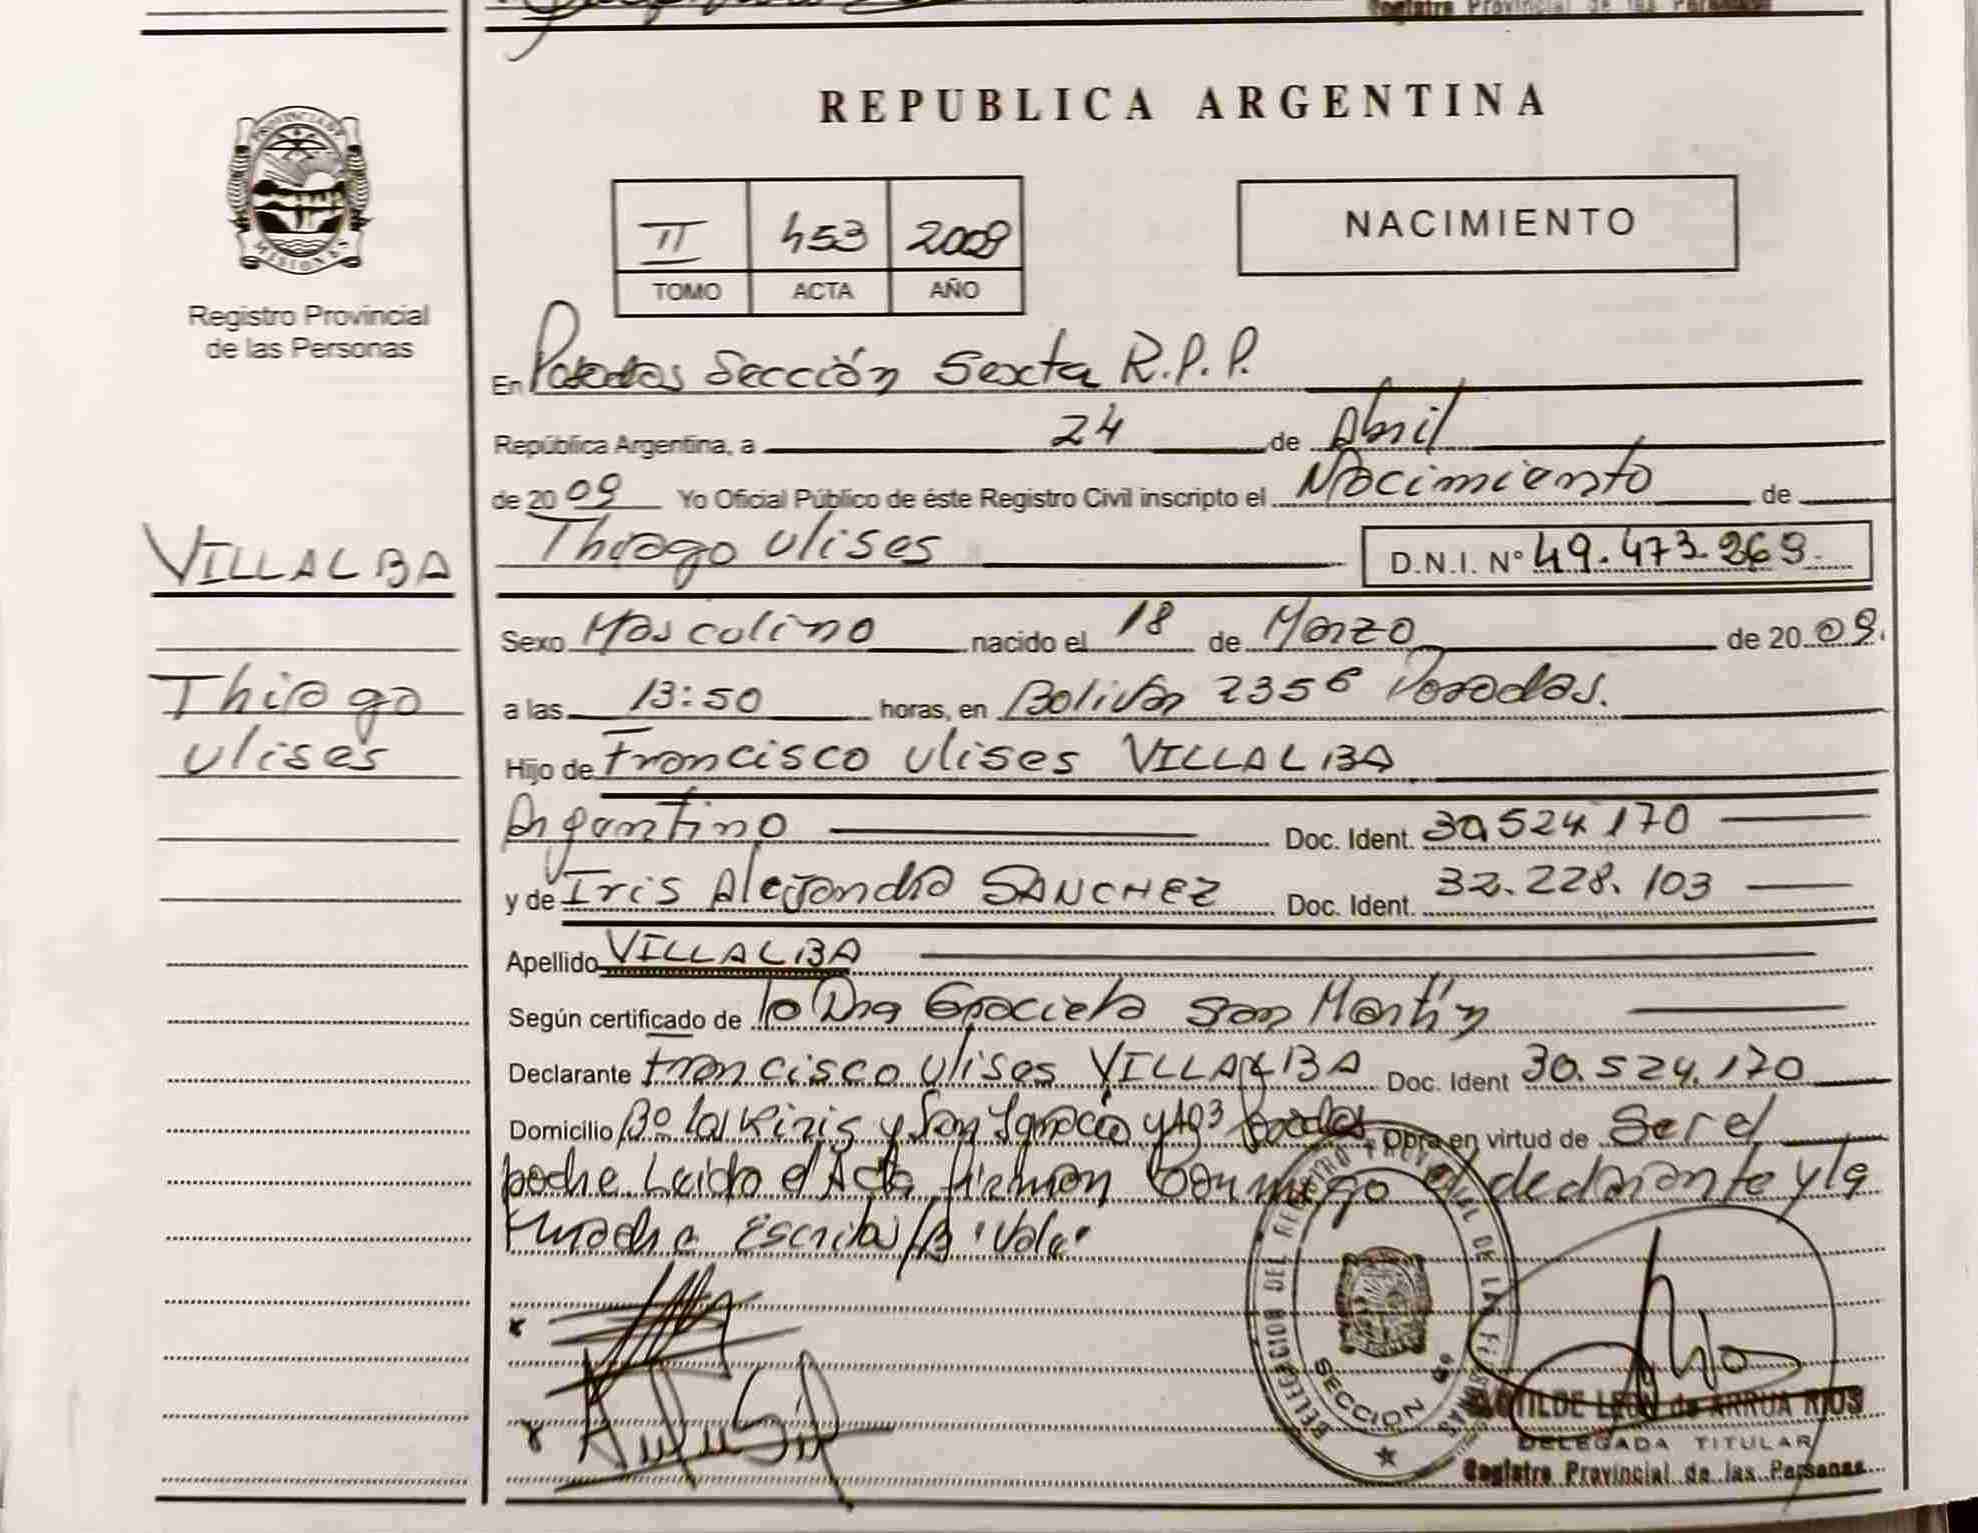 Registro Provincial de las Personas
REPUBLICA ARGENTINA
PROVINCIA DE
MISIONES
Registro Provincial
de las Personas
II 453 2009
TOMO ACTA AÑO
NACIMIENTO
En Posadas Sección Sexta R.P.P.
República Argentina, a 24 de Abril
de 2009 Yo Oficial Público de éste Registro Civil inscripto el Nacimiento de
VILLALBA
Thiago Ulises
Thiago Ulises D.N.I. N° 49.473.269.
Sexo Masculino nacido el 18 de Marzo de 2009.
a las 13:50 horas, en Bolivar 2356 Posadas.
Hijo de Francisco Ulises VILLALBA
Argentino Doc. Ident. 30.524.170
y de Iris Alejandra SANCHEZ Doc. Ident. 32.228.103
Apellido VILLALBA
Según certificado de la Dra Graciela San Martín
Declarante Francisco Ulises VILLALBA Doc. Ident 30.524.170
Domicilio Bº y San Ignacio Posadas Obra en virtud de Ser el
padre Leido el Acta firman Conmigo el declarante y la
madre "Vale"
DELEGACION DEL REGISTRO PROVINCIAL DE LAS PERSONAS
SECCION 6ª
MATILDE LEON de ARRUA RIOS
DELEGADA TITULAR
Registro Provincial de las Personas